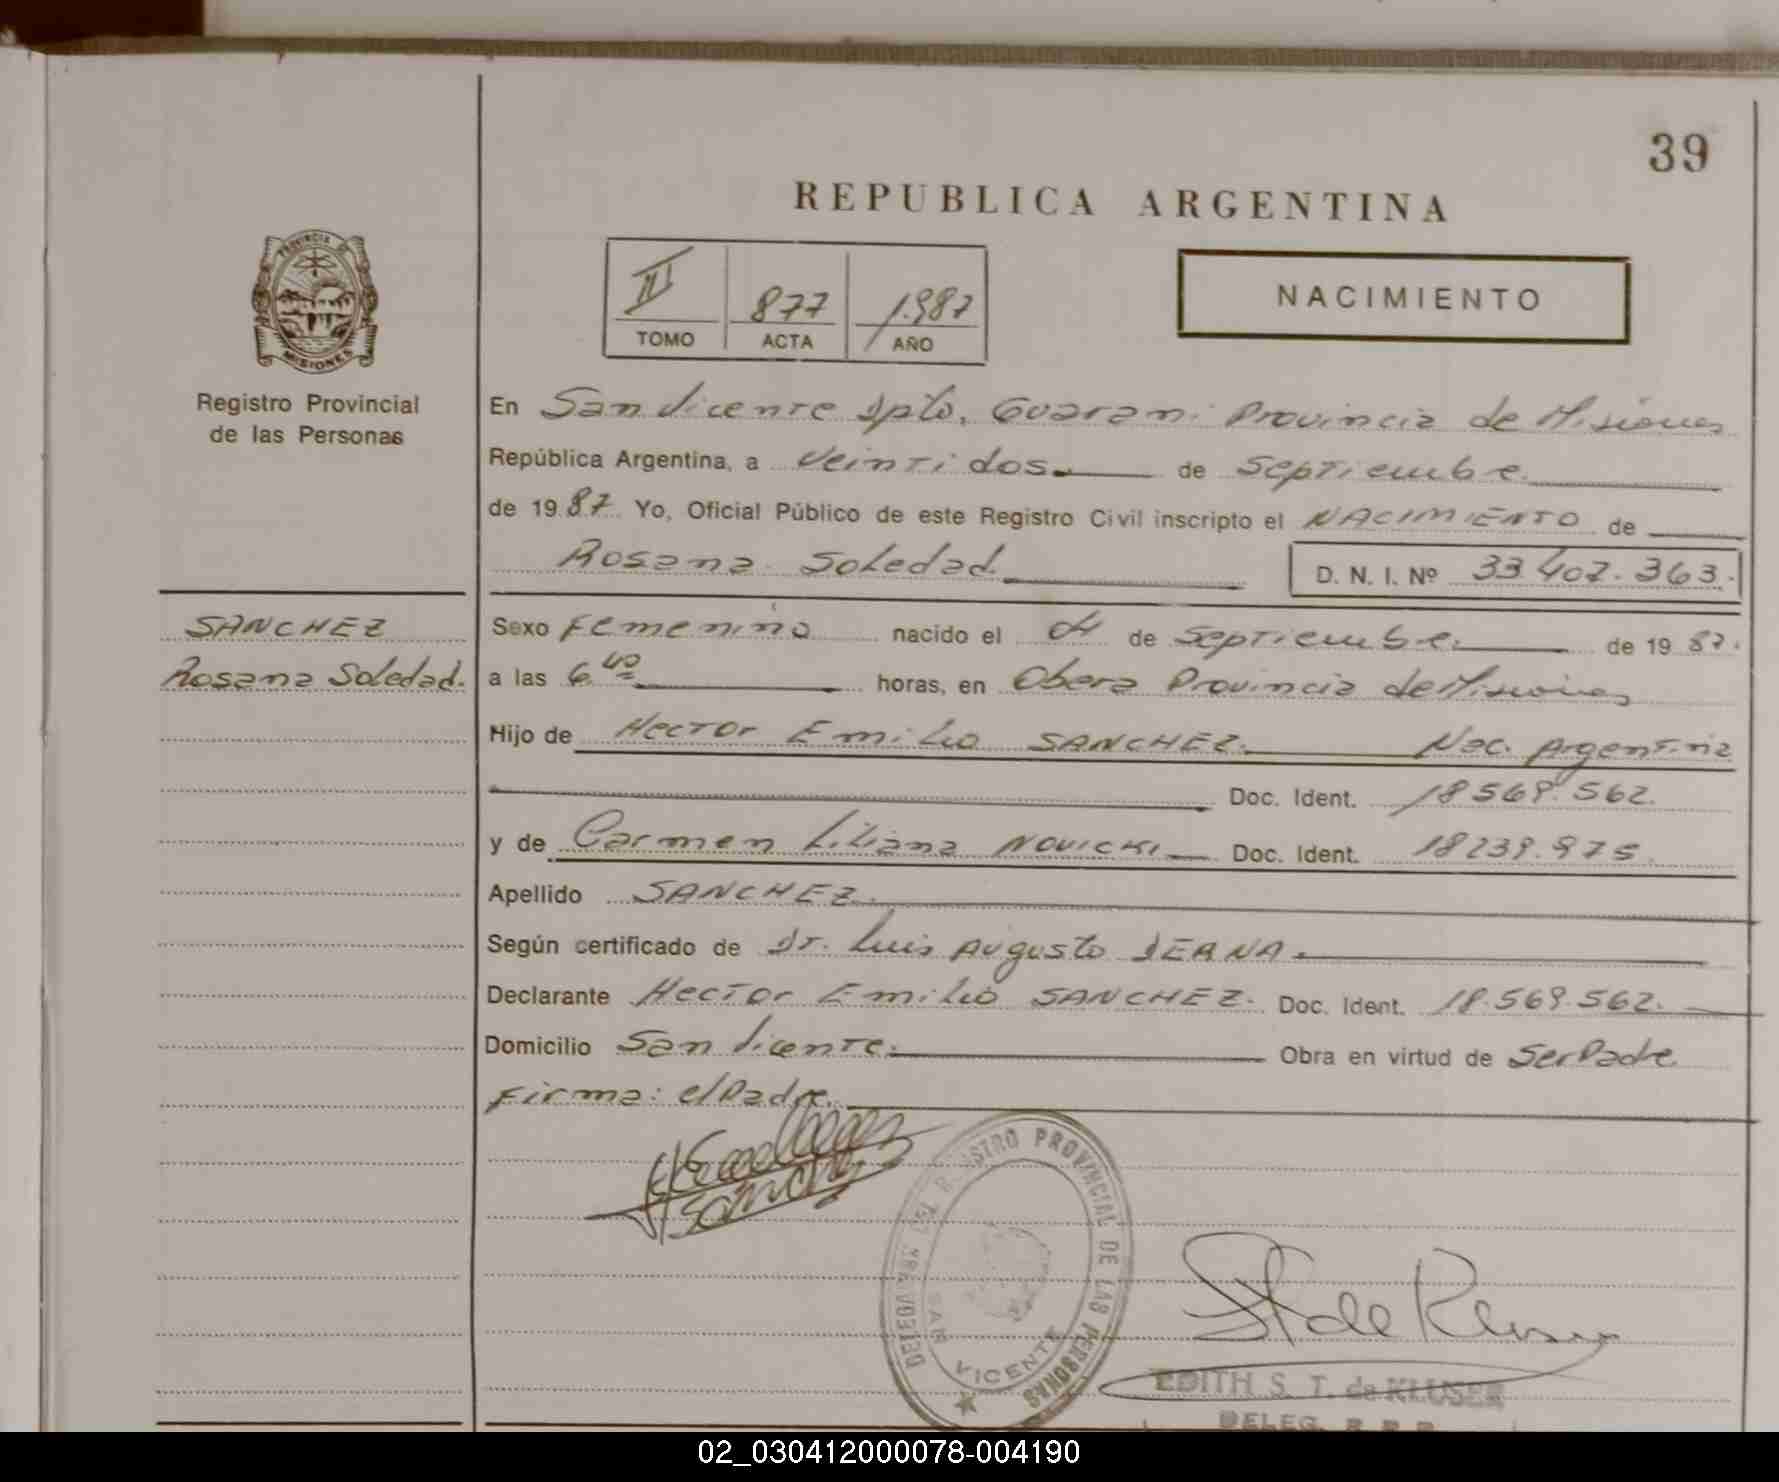 39
REPUBLICA ARGENTINA
PROVINCIA DE
MISIONES
Registro Provincial
de las Personas
II 877 1.987
TOMO ACTA AÑO
NACIMIENTO
En San Vicente Dpto. Guarani Provincia de Misiones
República Argentina, a Veintidos de Septiembre.
de 1987 Yo, Oficial Público de este Registro Civil inscripto el NACIMIENTO de
Rosana Soledad. D. N. I. Nº 33.407.363.
SANCHEZ
Rosana Soledad.
Sexo Femenino nacido el 04 de Septiembre. de 1987.
a las 6 40 horas, en Obera Provincia de Misiones
Hijo de Hector Emilio SANCHEZ. Nac. Argentina
Doc. Ident. 18569.562.
y de Carmen Liliana NOVICKI Doc. Ident. 18239.975.
Apellido SANCHEZ.
Según certificado de Dr. Luis Augusto DERNA.
Declarante Hector Emilio SANCHEZ. Doc. Ident. 18.569.562.
Domicilio San Vicente. Obra en virtud de Ser Padre
Firma: el Padre.
Sanchez
REGISTRO PROVINCIAL DE LAS PERSONAS
DELEGACION
SAN VICENTE
ST de Kluser
EDITH S. T. de KLUSER
DELEG. R. P. P.
02_030412000078-004190